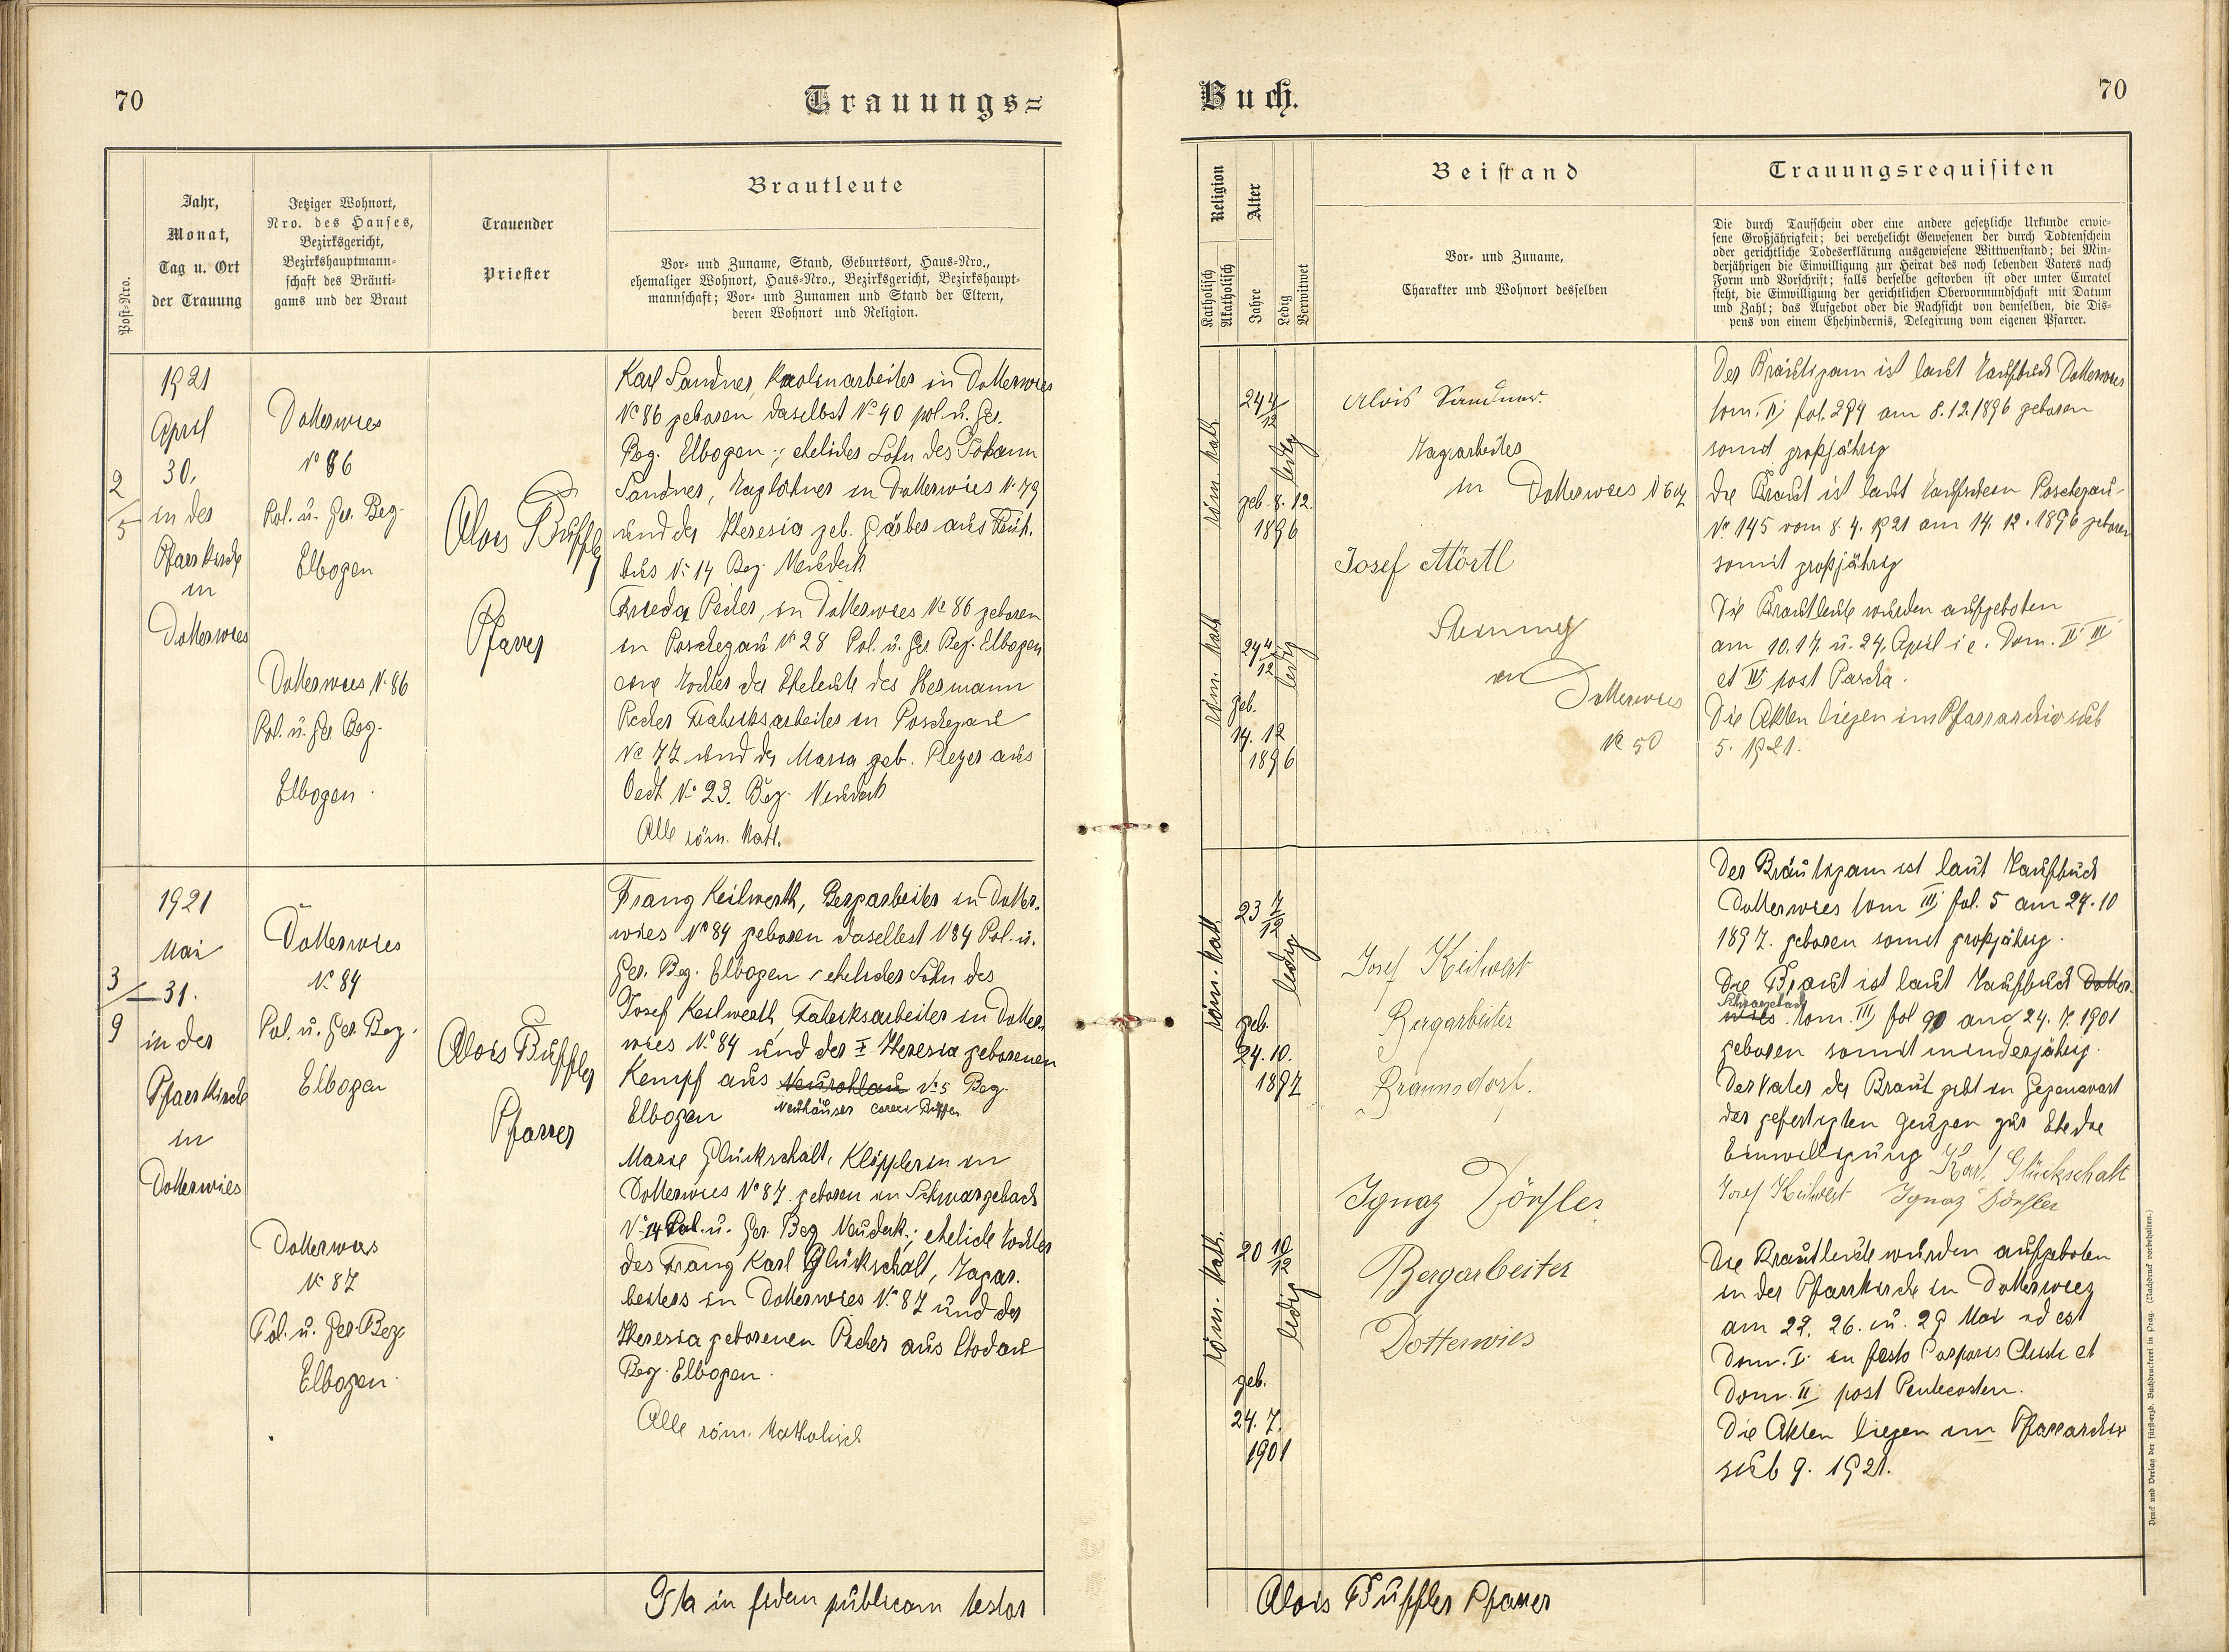 70
Trauungs=
Post-Nro.
Jahr,
Monat,
Tag u. Ort
der Trauung
Jetziger Wohnort,
Nro. des Hauses,
Bezirksgericht,
Bezirkshauptmann-
schaft des Bräuti-
gams und der Braut
Trauender
Priester
Brautleute
Vor- und Zuname, Stand, Geburtsort, Haus-Nro.,
ehemaliger Wohnort, Haus-Nro., Bezirksgericht, Bezirkshaupt-
mannschaft; Vor- und Zunamen und Stand der Eltern,
deren Wohnort und Religion.
2/5
1921
April
30.
in der
Pfarrkirche
in
Dotterwies
Dotterwies
No 86
Pol. u. Ger. Bez.
Elbogen
Dotterwies No 86
Pol. u. Ger. Bez.
Elbogen.
Alois Büffler
Pfarrer
Karl Sandner, Kaolinarbeiter in Dotterwies
No 86 geboren daselbst No 40 pol. u. Ger.
Bez. Elbogen; eheliches Sohn des Johann
Sandner, Taglöhner in Dotterwies No 79
und der Theresia geb. Färber aus
No 14 Bez. Neudek
Frieda Pecher, in Dotterwies No 86 geboren
in Poschezau No 28 Pol. u. Ger. Bez. Elbogen
ehe Tochter der Eheleute des Hermann
Pecher Fabriksarbeiter in Poschezau
No 77 und der Maria geb. aus
Oedt No 23. Bez. Neudek
Alle röm. Kath.
3/9
1921
Mai
31.
in der
Pfarrkirche
in
Dotterwies
Dotterwies
No 84
Pol. u. Ger. Bez.
Elbogen
Dotterwies
No 87
Pol. u. Ger. Bez.
Elbogen.
Alois Büffler
Pfarrer
Franz Keilwerth, Bergarbeiter in Dotter-
wies No 84 geboren daselbst N 84 Pol. u.
Ger. Bez. Elbogen ehelicher Sohn des
Josef Keilwerth, Fabriksarbeiter in Dotter-
wies No 84 und der Theresia geborenen
Kempf aus Neurohlau No 5 Bez.
Neuhäuser
Elbogen
Marie Glückschalt, Klöpplerin in
Dotterwies No 87. geboren in Schwarzebach
No 14 Pol. u. Ger. Bez. Neudek; eheliche Tochter
des Franz Karl Glückschalt, Tagar-
beiters in Dotterwies No 87 und der
Theresia geborenen Pecher aus Chodau
Bez. Elbogen.
Alle röm. Katholisch
Ita in fidem publicam testor
Buch.
70
Religion
Katholisch
Akatholisch
Alter
Jahre
Ledig
Verwitwet
Beistand
Vor- und Zuname,
Charakter und Wohnort desselben
Trauungsrequisiten
Die durch Taufschein oder eine andere gesetzliche Urkunde erwie-
sene Großjährigkeit; bei verehelicht Gewesenen der durch Todtenschein
oder gerichtliche Todeserklärung ausgewiesene Wittwenstand; bei Min-
derjährigen die Einwilligung zur Heirat des noch lebenden Vaters nach
Form und Vorschrift; falls derselbe gestorben ist oder unter Curatel
steht, die Einwilligung der gerichtlichen Obervormundschaft mit Datum
und Zahl; das Aufgebot oder die Nachsicht von demselben, die Dis-
pens von einem Ehehindernis, Delegirung vom eigenen Pfarrer.
röm. kath.
24 4/12
ledig
geb. 8. 12.
1896
röm. kath
24 4/12
ledig
geb.
14. 12
1896
Alois Sandner.
Tagarbeiter
in Dotterwies
Josef Mörtl
in
Dotterwies
No 50
Der Bräutigam ist laut Taufbuch Dotterwies
tom. II fol. 274 am 8. 12. 1896 geboren
somit großjährig
Die Braut ist laut Taufschein Poschezau
No 145 vom 8. 4. 1921 am 14. 12. 1896 geboren
somit großjährig
Die Brautleute wurden aufgeboten
am 10. 17. u. 24. April i e. Dom. II III
et IV post Pascha.
Die Akten liegen im Pfarrarchiv sub
5. 1921.
röm. kath.
23 7/12
ledig
geb.
24. 10.
1897
röm. kath.
20 10/12
ledig
geb.
24. 7.
1901
Josef Keilwert
Bergarbeiter
Braunsdorf.
Ignaz Dörfler
Bergarbeiter
Dotterwies
Der Bräutigam ist laut Taufbuch
Dotterwies tom III fol. 5 am 24. 10
1897. geboren somit großjährig.
Die Braut ist laut Taufbuch Dotter-
Schwarzebach
wies tom. III fol 90 am 24. 7. 1901
geboren somit minderjährig.
Der Vater der Braut gibt in Gegenwart
der gefertigten Zeugen zur Ehe die
Einwilligung Karl Glückschalt
Josef Keilwert Ignaz Dörfler
Die Brautleute wurden aufgeboten
in der Pfarrkirche in Dotterwies
am 22. 26. u. 29 Mai id est
Dom. I in festo Corporis Christi et
Dom. II post Pentecosten.
Die Akten liegen im Pfarrarchiv
sub 9. 1921.
Alois Büffler Pfarrer
Druck und Verlag der fürsterzb. Buchdruckerei in Prag. (Nachdruck vorbehalten.)